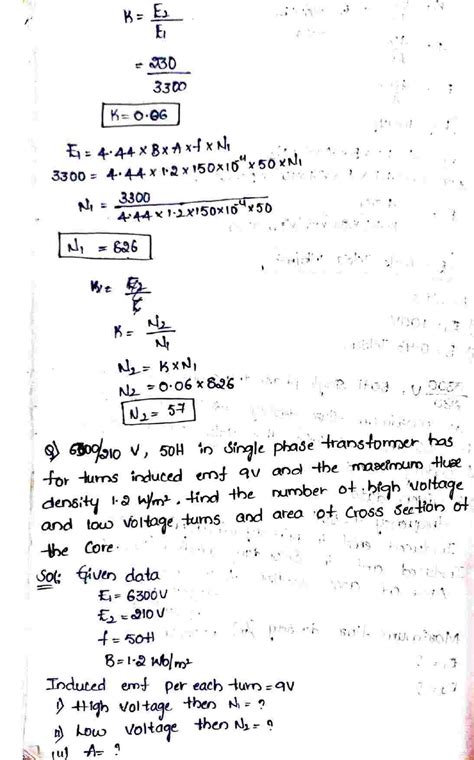 K = E₂/E₁
= 230/3300
K = 0.06
E₁ = 4.44 × B × A × f × N₁
3300 = 4.44 × 1.2 × 150 × 10⁻⁴ × 50 × N₁
N₁ = 3300/4.44 × 1.2 × 150 × 10⁻⁴ × 50
N₁ = 826
K = N₂/N₁
N₂ = K × N₁
N₂ = 0.06 × 826
N₂ = 57
Q) 6300/210 V, 50H in single phase transformer has
for turns induced emf 9V and the maximum flux
density 1.2 W/m². find the number of high voltage
and low voltage, turns and area of cross section of
the core.
Sol: Given data
E₁ = 6300V
E₂ = 210V
f = 50H
B = 1.2 Wb/m²
Induced emf per each turn = 9V
i) High voltage then N₁ = ?
ii) Low voltage then N₂ = ?
(iii) A = ?